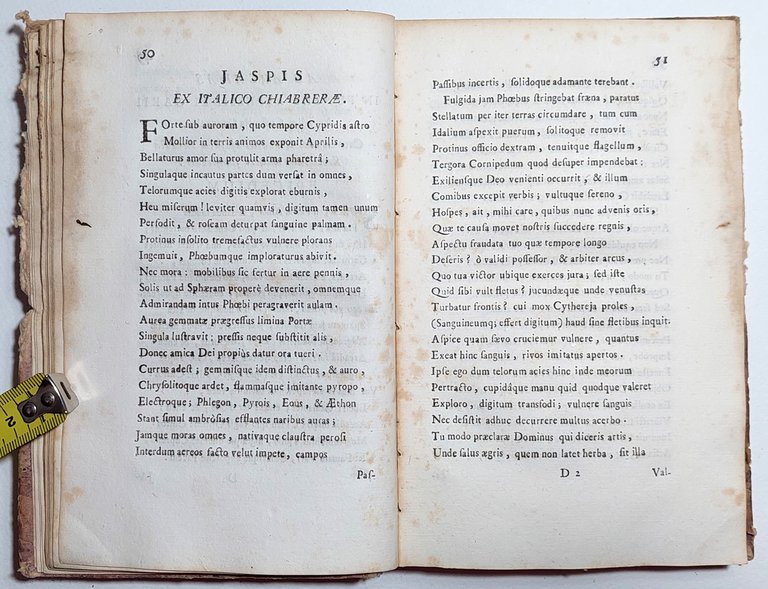 50
JASPIS
EX ITALICO CHIABRERÆ.
FOrte sub auroram, quo tempore Cypridis astro
Mollior in terris animos exponit Aprilis,
Bellaturus amor sua protulit arma pharetrâ;
Singulaque incautus partes dum versat in omnes,
Telorumque acies digitis explorat eburnis,
Heu miserum! leviter quamvis, digitum tamen unum
Perfodit, & roseam deturpat sanguine palmam.
Protinus insolito tremefactus vulnere plorans
Ingemuit, Phœbumque imploraturus abivit.
Nec mora: mobilibus sic fertur in aere pennis,
Solis ut ad Sphæram properè devenerit, omnemque
Admirandam intus Phœbi peragraverit aulam.
Aurea gemmatæ prægressus limina Portæ
Singula lustravit: pressis neque substitit alis,
Donec amica Dei propiùs datur ora tueri.
Currus adest; gemmisque idem distinctus, & auro,
Chrysolitoque ardet, flammasque imitante pyropo,
Electroque; Phlegon, Pyrois, Eous, & Æthon
Stant simul ambròsias efflantes naribus auras;
Jamque moras omnes, nativaque claustra perosi
Interdum aereos facto velut impete, campos
Pas-
51
Passibus incertis, solidoque adamante terebant.
Fulgida jam Phœbus stringebat fræna, paratus
Stellatum per iter terras circumdare, tum cum
Idalium aspexit puerum, solitoque removit
Protinus officio dextram, tenuitque flagellum,
Tergora Cornipedum quod desuper impendebat:
Exiliensque Deo venienti occurrit, & illum
Comibus excepit verbis; vultuque sereno,
Hospes, ait, mihi care, quibus nunc advenis oris,
Quæ te causa movet nostris succedere regnis,
Aspectu fraudata tuo quæ tempore longo
Deseris? ô validi possessor, & arbiter arcus,
Quo tua victor ubique exerces jura; sed iste
Quid sibi vult fletus? jucundæque unde venustas
Turbatur frontis? cui mox Cythereja proles,
(Sanguineumq; effert digitum) haud sine fletibus inquit.
Aspice quam sævo cruciemur vulnere, quantus
Exeat hinc sanguis, rivos imitatus apertos.
Ipse ego dum telorum acies hinc inde meorum
Pertracto, cupidâque manu quid quodque valeret
Exploro, digitum transfodi; vulnere sanguis
Nec desistit adhuc decurrere multus acerbo.
Tu modo præclaræ Dominus qui diceris artis,
Unde salus ægris, quem non latet herba, sit illa
D 2
Val-
2